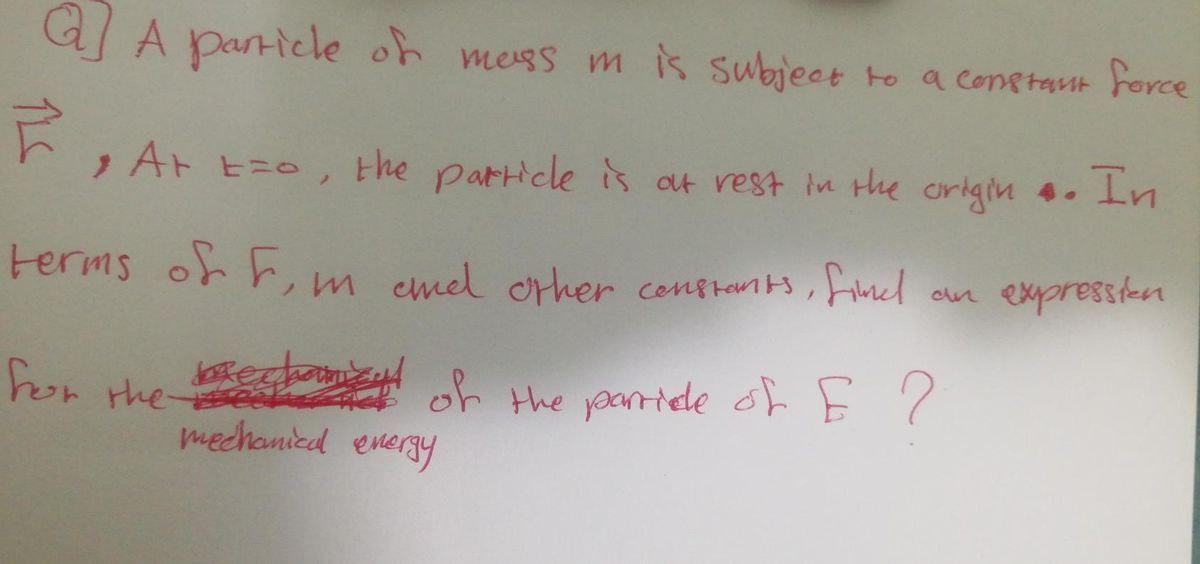 Q] A particle of mass m is subject to a constant force
F⃗, At t=0, the particle is at rest in the origin. In
terms of F, m and other constants, find an expression
for the of the particle of E ?
mechanical energy